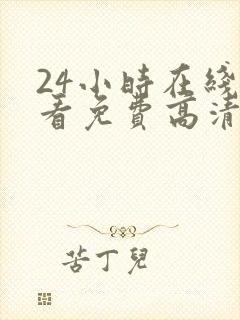 24小時在綫
看免費高清
苦丁兒